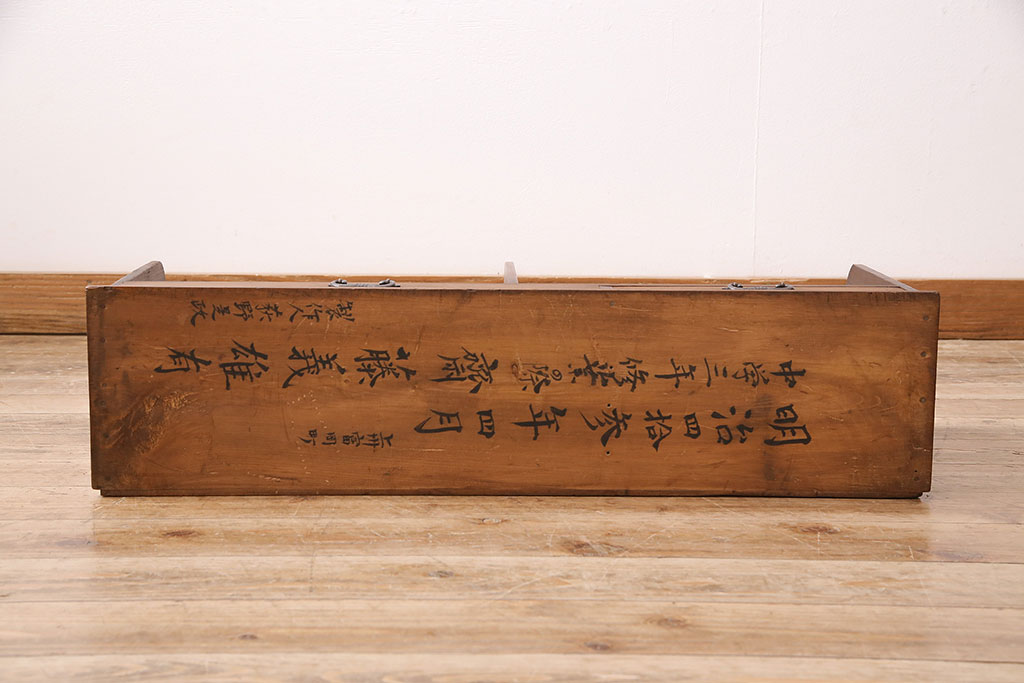 明治四拾参年四月
上州富岡町
中学三年修業の際 齋藤義雄有
製作人 野里政